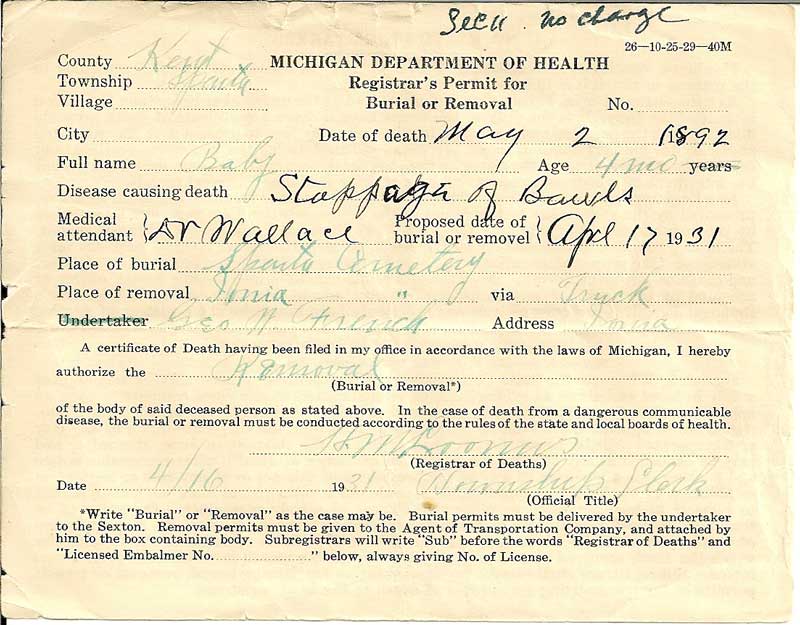 Sec 11 no charge
26—10-25-29—40M
County Kent MICHIGAN DEPARTMENT OF HEALTH
Township Sparta Registrar's Permit for
Village Burial or Removal No.
City Date of death May 2 1892
Full name Baby Age 4 mo years
Disease causing death Stoppage of Bowls
Medical attendant } Dr Wallace Proposed date of burial or removel } Apl 17 1931
Place of burial Sparta Cemetery
Place of removal Ionia " via Truck
Undertaker Geo W French Address Ionia
A certificate of Death having been filed in my office in accordance with the laws of Michigan, I hereby
authorize the Removal
(Burial or Removal*)
of the body of said deceased person as stated above. In the case of death from a dangerous communicable
disease, the burial or removal must be conducted according to the rules of the state and local boards of health.
H M Loomis
(Registrar of Deaths)
Date 4/16 1931 Township Clerk
(Official Title)
*Write "Burial" or "Removal" as the case may be. Burial permits must be delivered by the undertaker
to the Sexton. Removal permits must be given to the Agent of Transportation Company, and attached by
him to the box containing body. Subregistrars will write "Sub" before the words "Registrar of Deaths" and
"Licensed Embalmer No. " below, always giving No. of License.